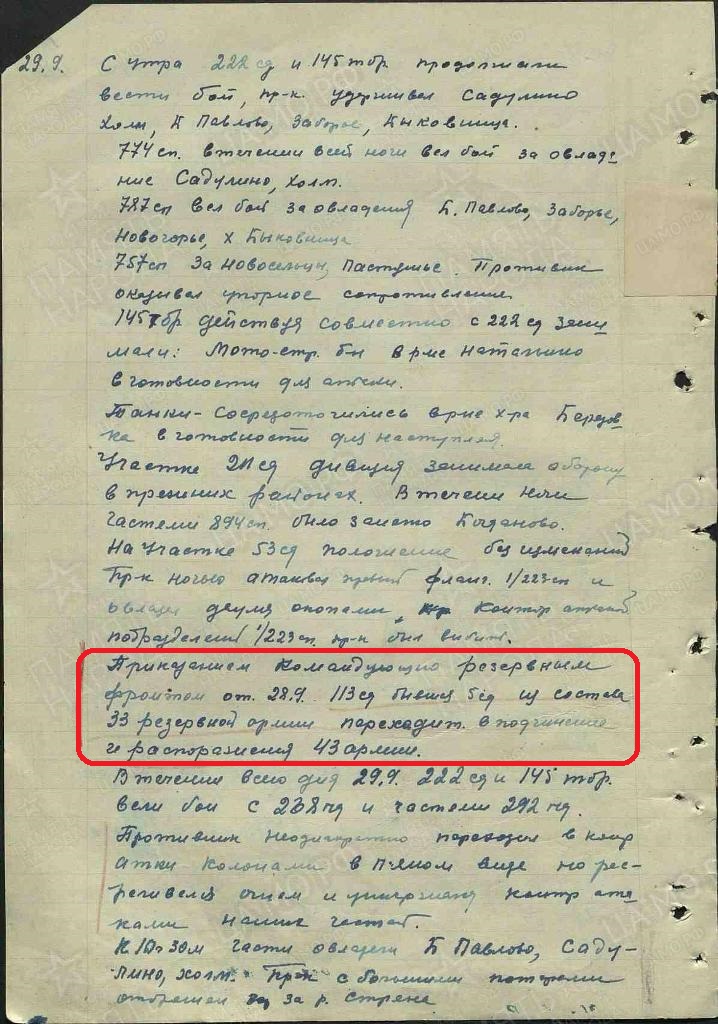 29.9. С утра 222 сд и 145 тбр. продолжали
вести бой, пр-к удерживал Садулино
Холм, Б Павлово, Заборье, Быковница.
774 сп. в течении всей ночи вел бой за овладе
ние Садулино, Холм.
787 сп вел бой за овладения Б. Павлово, Заборье,
Новогорье, х Быковница
757 сп за Новоселки, Пастушье. Противник
оказывал упорное сопротивление
145 тбр действуя совместно с 222 сд зани
мали: Мото-стр. б-н в р-не Натальино
в готовности для атаки.
Танки - сосредоточились в р-не х-ра Березов
ка в готовности для наступлея.
Участке 211 сд дивизия занимала оборону
в прежних районах. В течени ночи
частями 894 сп. было занято Богданово.
На участке 53 сд положение без изменений
Пр-к ночью атаковал правый фланг. 1/223 сп и
овладел двумя окопами, контр атакой
подразделений 1/223 сп. пр-к был выбит.
Приказанием Командующего резервным
фронтом от. 28.9. 113 сд бывшая 5 сд из состава
33 резервной армии переходит. в подчинение
и распоражения 43 армии.
В течении всего дня 29.9. 222 сд и 145 тбр.
вели бои с 268 пд и частями 292 пд.
Противник неоднократно переходил в контр
атаки колонами в пьяном виде но рас-
стреливался огнем и контр ата
ками наших частей.
К 10ч 30м части овладели Б Павлово, Саду-
лино, холм. Пр-к с большими потерями
отброшен за р. Стряна